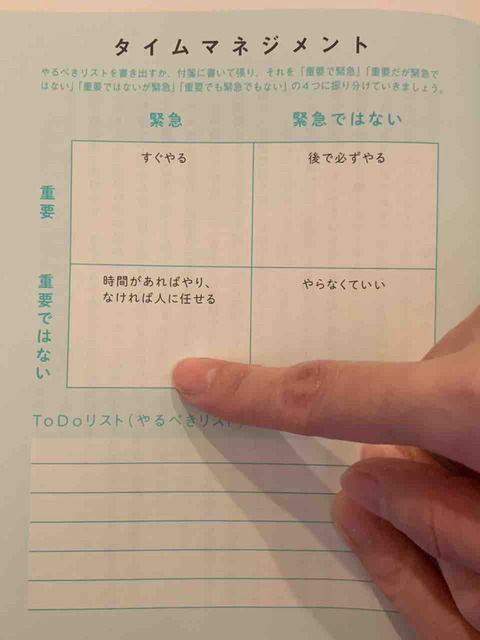 タイムマネジメント
やるべきリストを書き出すか、付箋に書いて張り、それを「重要で緊急」「重要だが緊急で
はない」「重要ではないが緊急」「重要でも緊急でもない」の4つに振り分けていきましょう。
緊急
緊急ではない
重要
すぐやる
後で必ずやる
重要ではない
時間があればやり、
なければ人に任せる
やらなくていい
ToDoリスト（やるべきリスト）